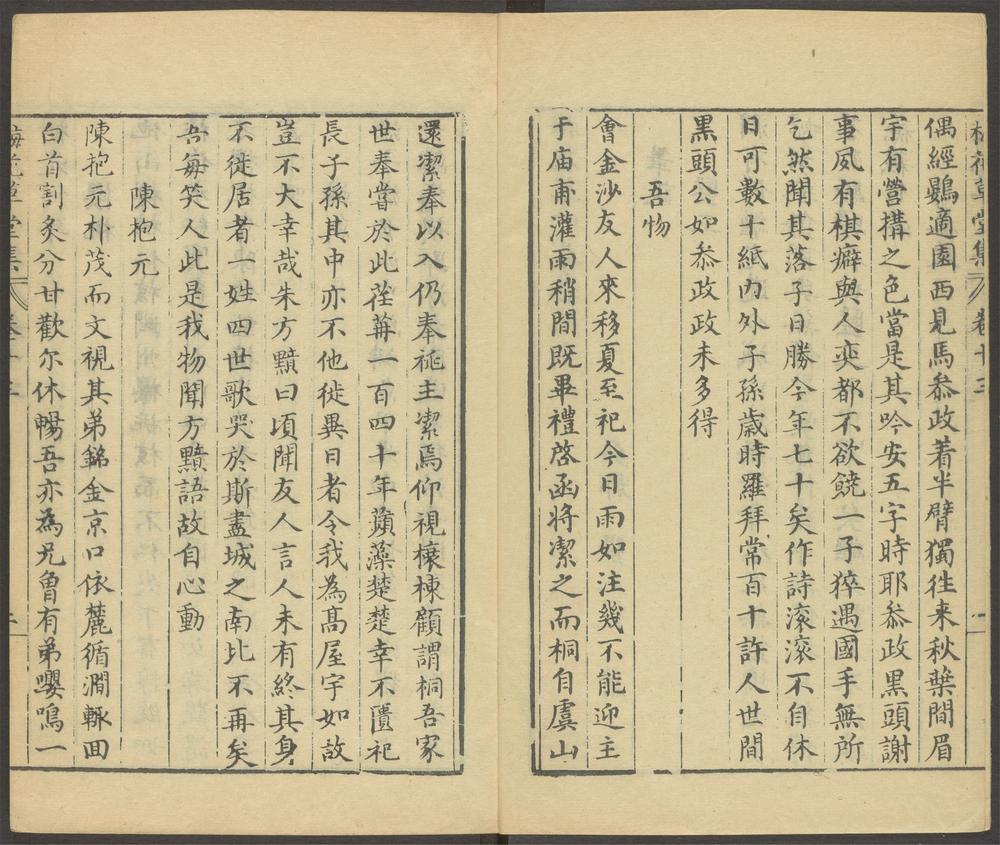 梅花草堂集 卷十三 一
偶經鷃適園西見馬叅政着半臂獨徃来秋葉間眉
宇有營搆之色當是其吟安五字時耶叅政黒頭謝
事夙有棋癖與人奕都不欲饒一子猝遇國手無所
乞然聞其落子日勝今年七十矣作詩滚滚不自休
日可數十紙內外子孫歳時羅拜常百十許人世間
黒頭公如叅政政未多得
吾物
會金沙友人來移夏至祀今日雨如注幾不能迎主
于庙甭灌雨稍間既畢禮啓函將潔之而桐自虞山
還潔奉以入仍奉祧主潔焉仰視榱棟顧謂桐吾家
世奉嘗於此荏苒一百四十年蘋藻楚楚幸不匱祀
長子孫其中亦不他徙異日者令我為髙屋宇如故
豈不大幸哉朱方黷曰頃聞友人言人未有終其身
不徙居者一姓四世歌哭於斯盡城之南比不再矣
吾每笑人此是我物聞方黷語故自心動
陳抱元
陳抱元朴茂而文視其弟銘金京口依麓循澗輙囬
白首割炙分甘歡尔休暢吾亦為兄魯有弟嚶鳴一
梅花草堂集 卷十三 二